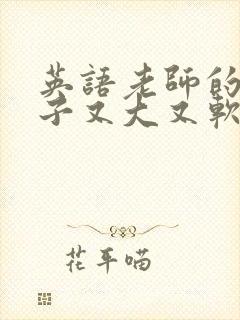 英語老師的
子又大又軟
花平喵